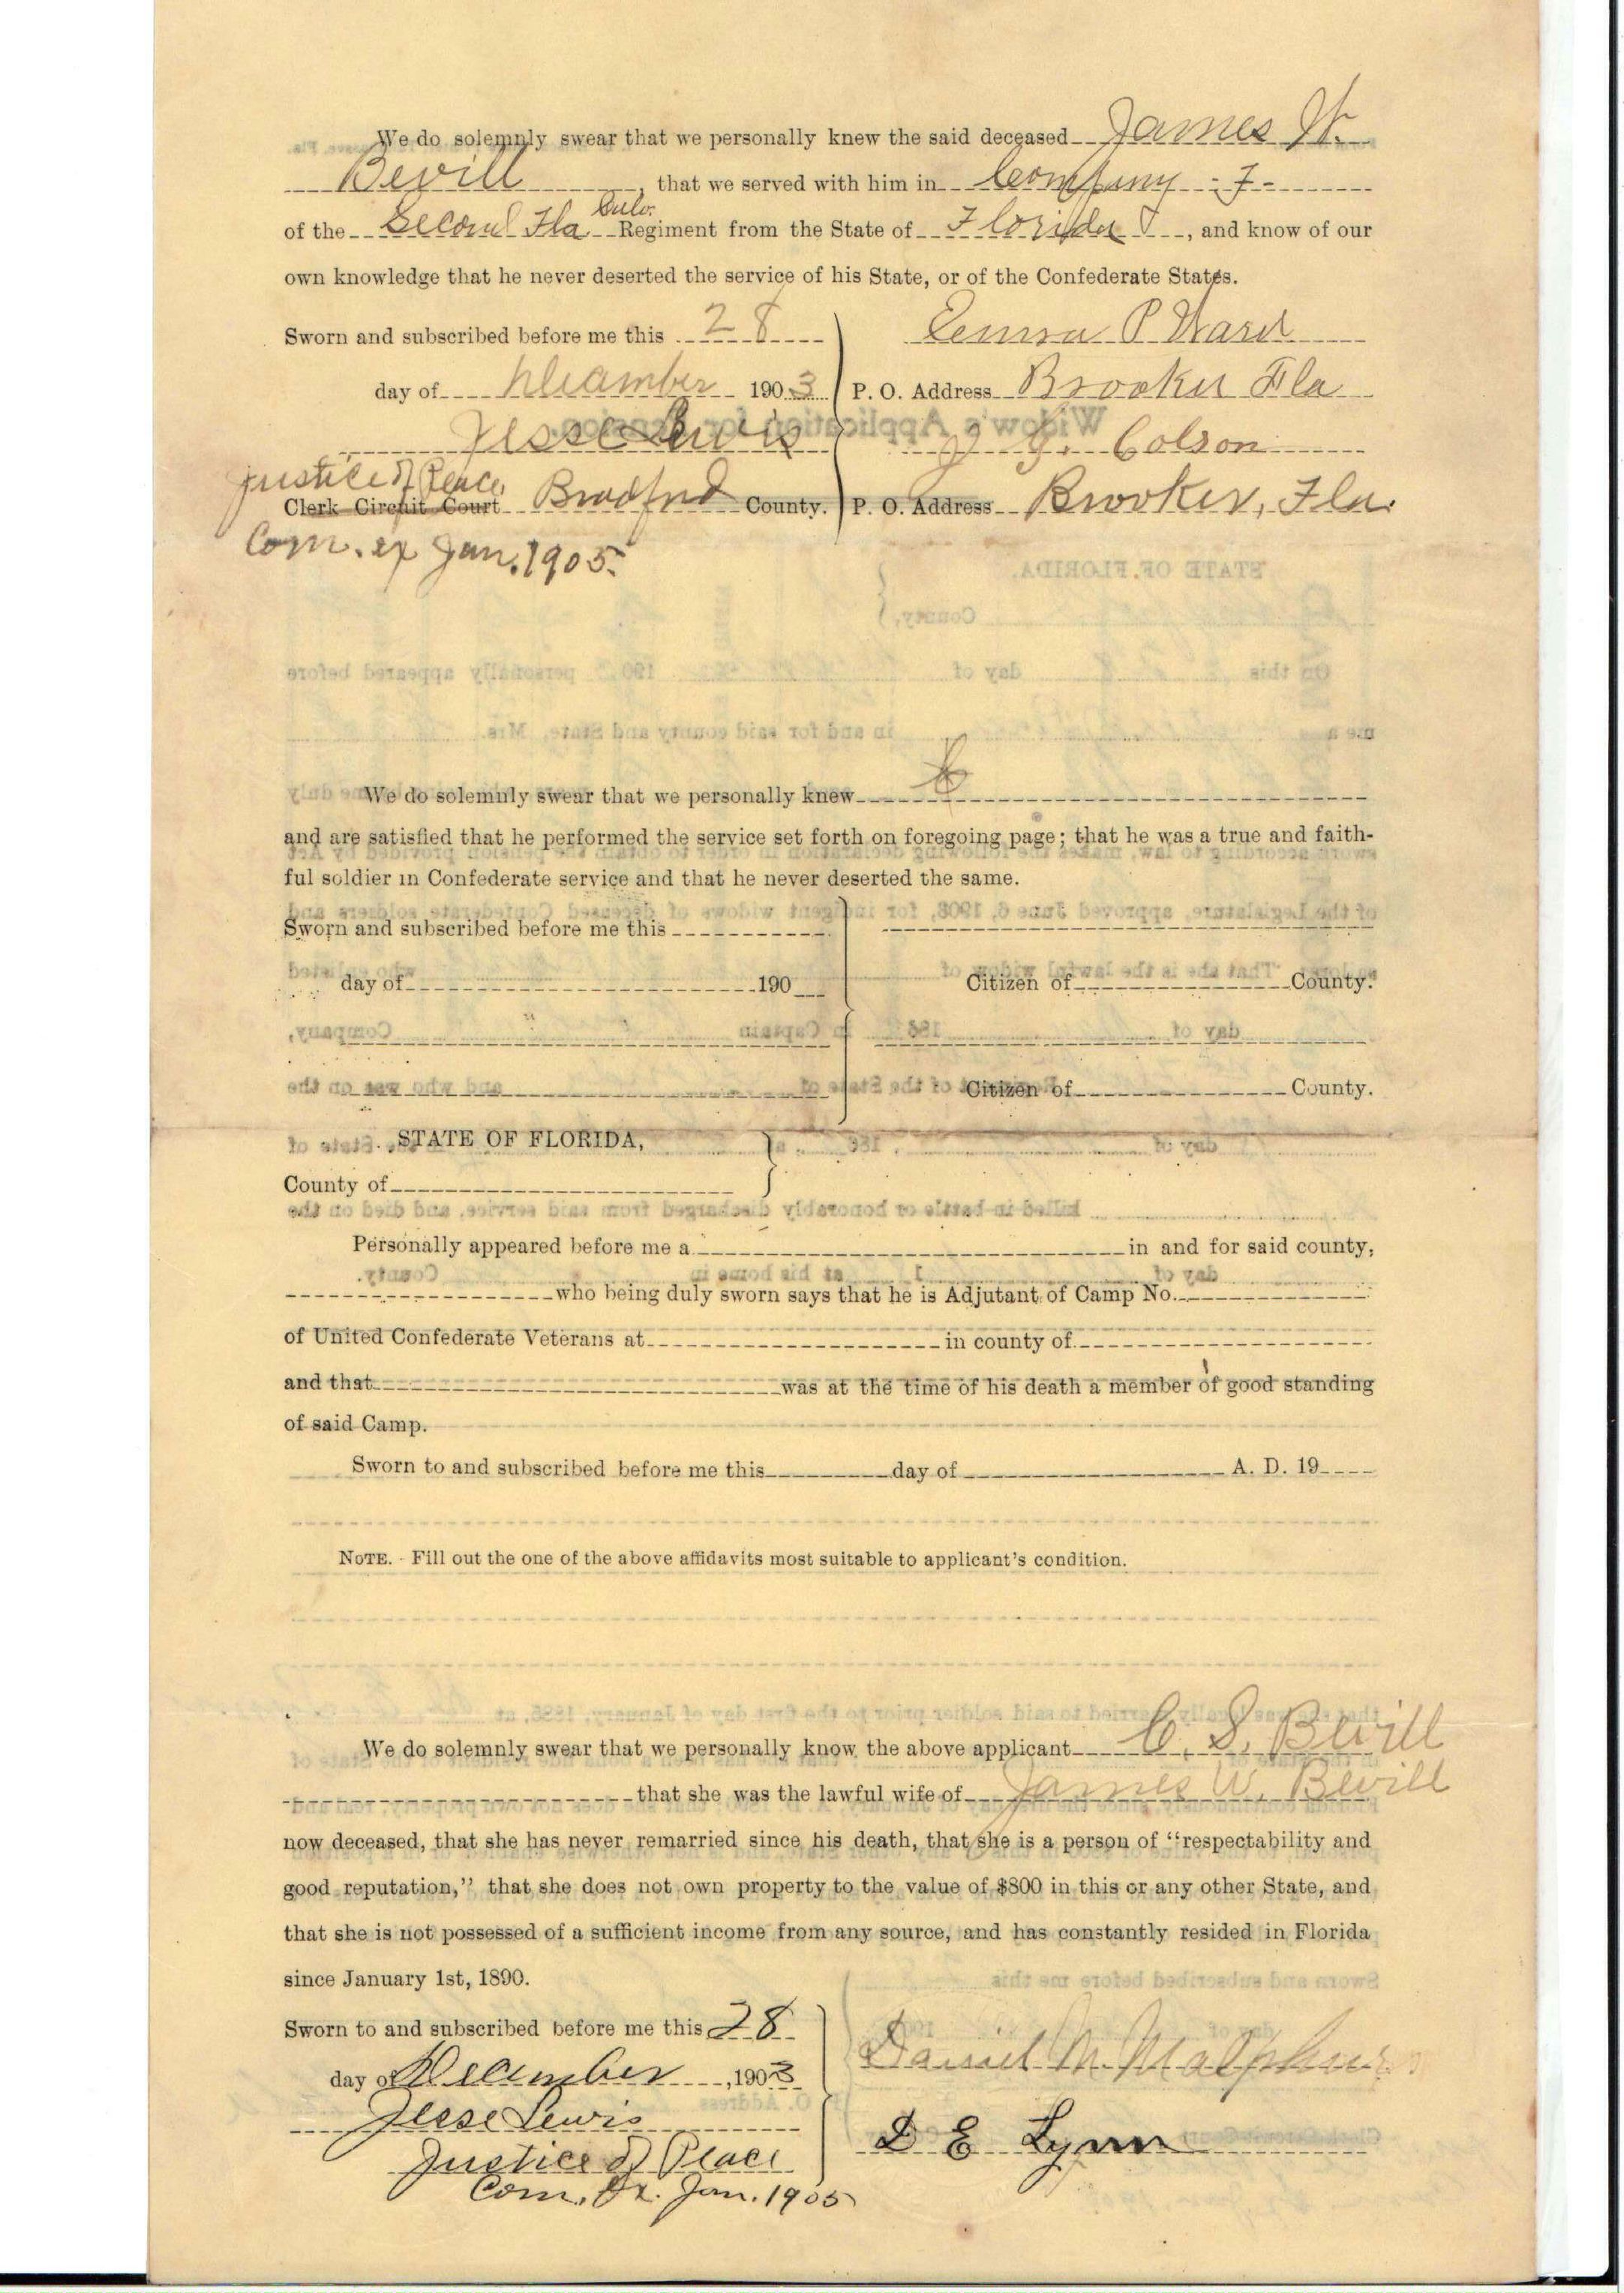 We do solemnly swear that we personally knew the said deceased James W.
Bevill, that we served with him in Company - F -
of the Second Fla Regiment from the State of Florida, and know of our
own knowledge that he never deserted the service of his State, or of the Confederate States.
Sworn and subscribed before me this 28
P Ward
day of December 1903
P. O. Address Brooker Fla
Jesse Lewis
Colson
Justice of Peace
Clerk Circuit Court Bradford County.
P. O. Address Brooker, Fla.
Com. ex Jan. 1905.
We do solemnly swear that we personally knew
and are satisfied that he performed the service set forth on foregoing page; that he was a true and faith-
ful soldier in Confederate service and that he never deserted the same.
Sworn and subscribed before me this
day of 190
Citizen of County.
Citizen of County.
STATE OF FLORIDA,
County of
Personally appeared before me a in and for said county,
who being duly sworn says that he is Adjutant of Camp No.
of United Confederate Veterans at in county of
and that was at the time of his death a member of good standing
of said Camp.
Sworn to and subscribed before me this day of A. D. 19
NOTE. - Fill out the one of the above affidavits most suitable to applicant's condition.
We do solemnly swear that we personally know the above applicant C. S. Bevill
that she was the lawful wife of James W. Bevill
now deceased, that she has never remarried since his death, that she is a person of "respectability and
good reputation," that she does not own property to the value of $800 in this or any other State, and
that she is not possessed of a sufficient income from any source, and has constantly resided in Florida
since January 1st, 1890.
Sworn to and subscribed before me this 28
Daniel M. Malphurs
day of December, 1903
Jesse Lewis
D E Lynn
Justice of Peace
Com. Ex. Jan. 1905